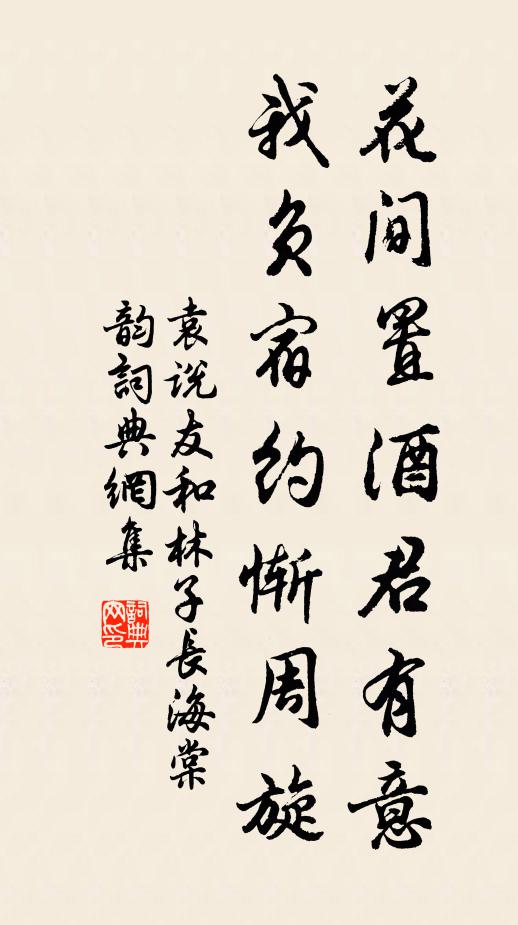 花间置酒君有意
我负宿约惭周旋
袁说友和林子長海棠
韵詞典網集
詞典网印